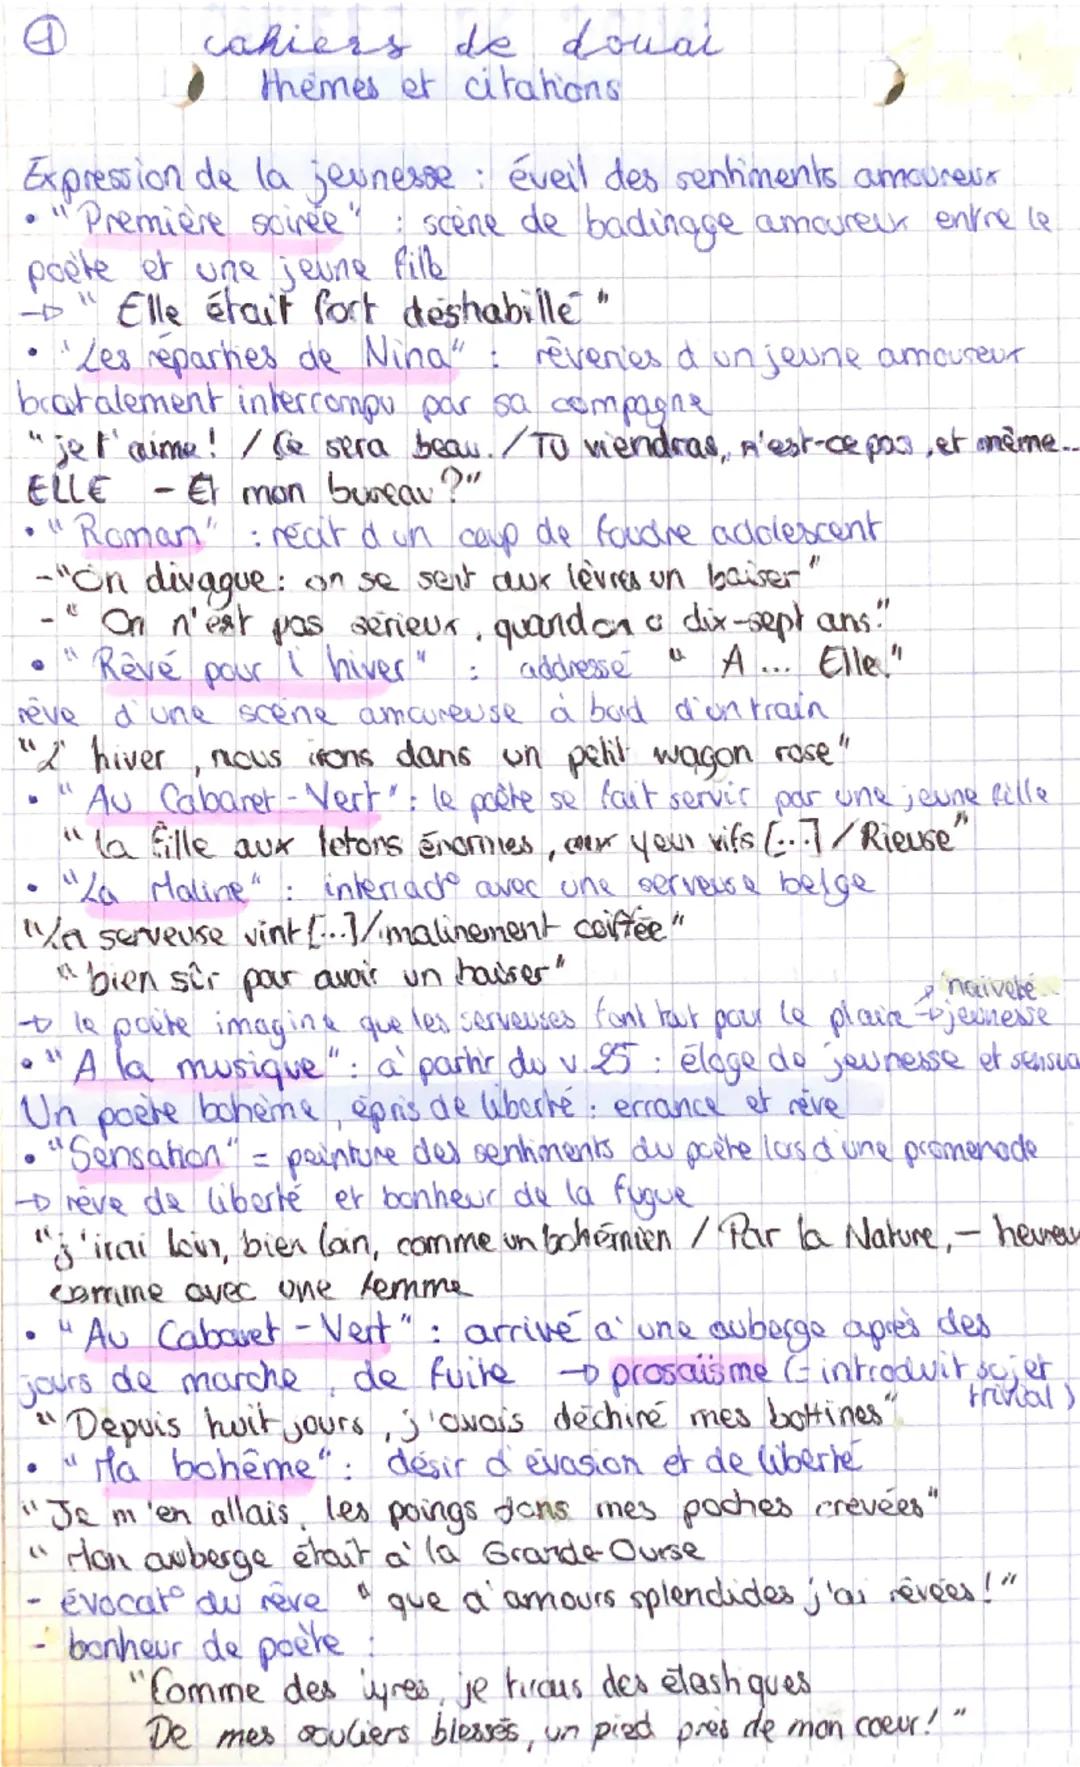 1 cahiers de douai
thèmes et citations
Expression de la jeunesse : éveil des sentiments amoureux
• "Première soirée" : scène de badinage amoureux entre le
poète et une jeune fille
→ " Elle était fort déshabillé "
• "Les réparties de Nina" : rêveries d'un jeune amoureux
brutalement interrompu par sa compagne
"je t'aime ! / Ce sera beau. / Tu viendras, n'est-ce pas, et même...
ELLE - Et mon bureau ?"
• "Roman" : récit d'un coup de foudre adolescent
- "On divague : on se sent aux lèvres un baiser"
- " On n'est pas sérieux, quand on a dix-sept ans."
• "Rêvé pour l'hiver" : addressé " A ... Elle."
rêve d'une scène amoureuse à bord d'un train
"L'hiver, nous irons dans un petit wagon rose"
• "Au Cabaret-Vert" : le poète se fait servir par une jeune fille
"la fille aux tetons énormes, aux yeux vifs [...] / Rieuse"
• "La Maline" : interract° avec une serveuse belge
"La serveuse vint [...] / malinement coiffée"
"bien sûr pour avoir un baiser"
→ naïveté
→ le poète imagine que les serveuses font tout pour le plaire → jeunesse
• "A la musique" : à partir du v.25 : éloge de jeunesse et sensua
Un poète bohème, épris de liberté : errance et rêve
• "Sensation" = peinture des sentiments du poète lors d'une promenade
→ rêve de liberté et bonheur de la fugue
"j'irai loin, bien loin, comme un bohémien / Par la Nature, - heureux
comme avec une femme
• "Au Cabaret-Vert" : arrivé à une auberge après des
jours de marche, de fuite → prosaïsme (= introduit sujet
trivial)
"Depuis huit jours, j'avais déchiré mes bottines"
• "Ma bohême" : désir d'évasion et de liberté
"Je m'en allais, les poings dans mes poches crevées"
"Mon auberge était à la Grande-Ourse
- évocat° du rêve " que d'amours splendides j'ai rêvées !"
- bonheur de poète :
"Comme des lyres, je tirais des élastiques
De mes souliers blessés, un pied près de mon coeur ! "